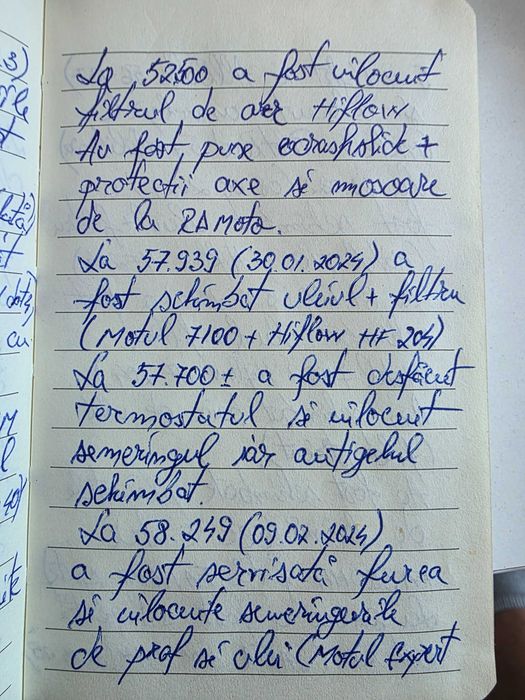 La 52500 a fost înlocuit
filtrul de aer Hiflow
Au fost puse crashslide +
protecții axe și mosoare
de la RDMoto.
La 57.939 (30.01.2024) a
fost schimbat uleiul + filtru
(Motul 7100 + Hiflow HF 204)
La 57.700± a fost desfăcut
termostatul și înlocuit
semeringul iar antigelul
schimbat.
La 58.249 (09.02.2024)
a fost servisată furca
și înlocuite semeringurile
de praf și ulei (Motul Expert
3)
cu
M
40)